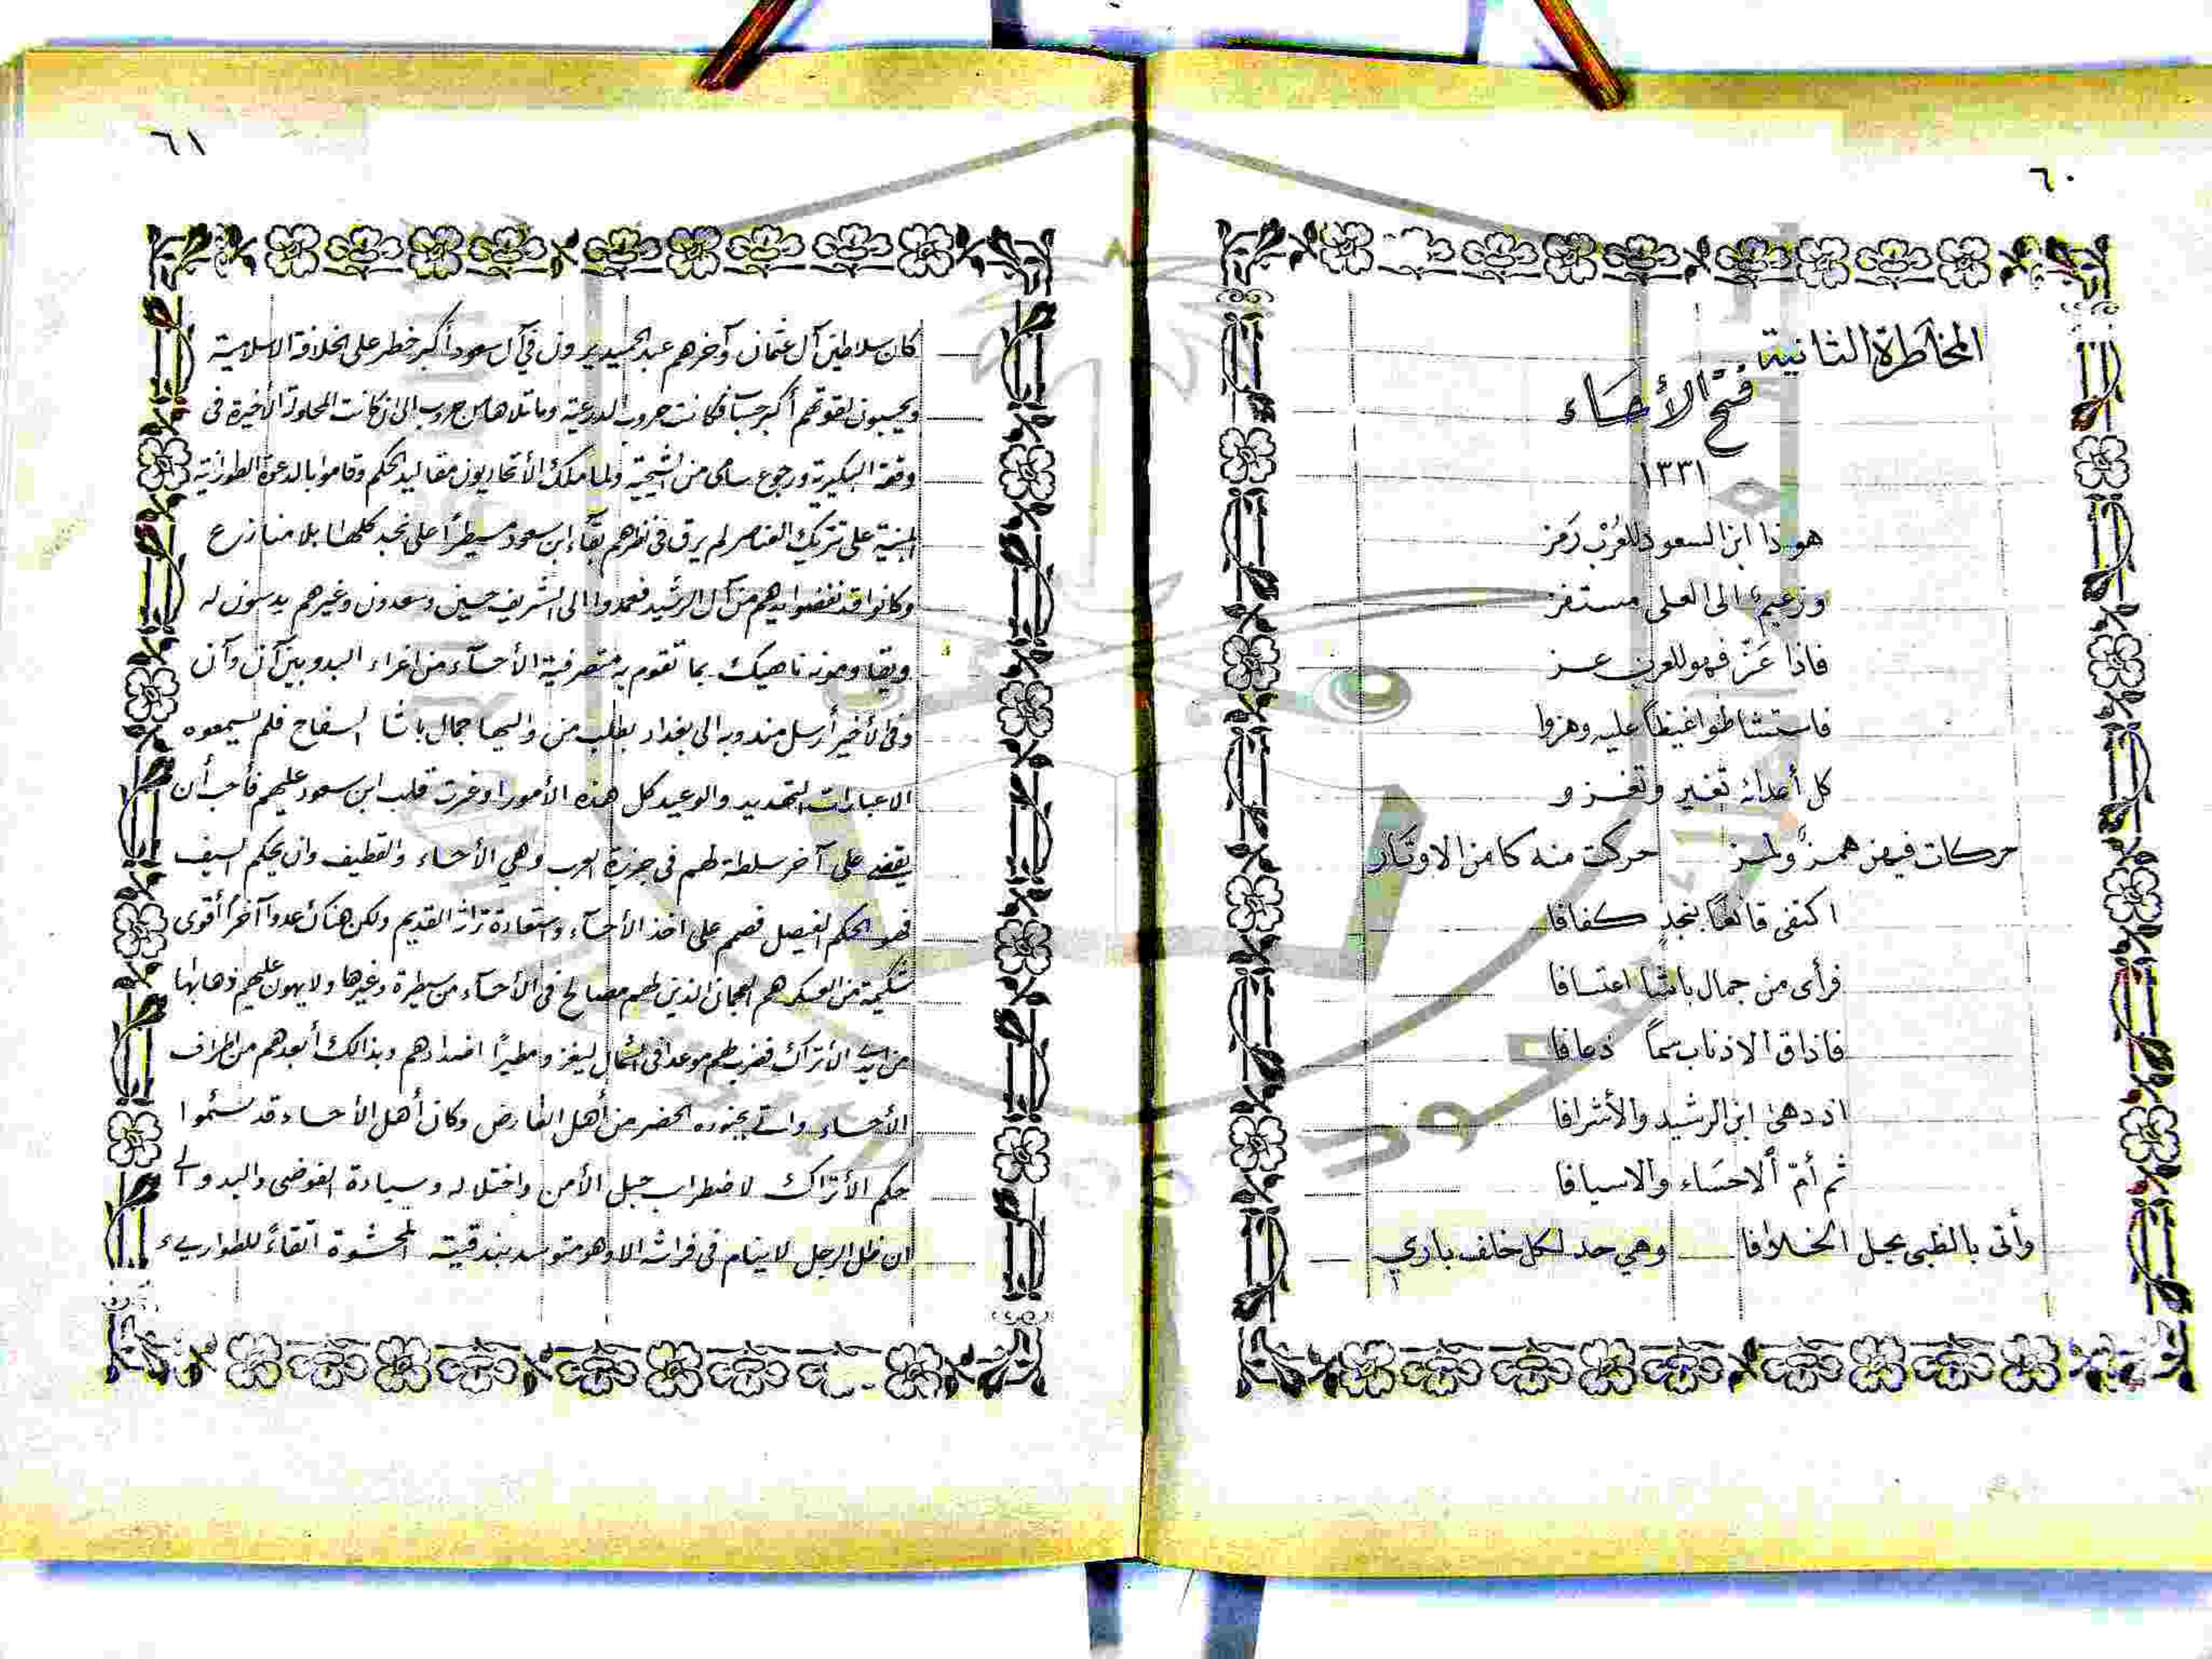 ٦٠
المخاطرة الثانية
فتح الأحساء
١٣٣١
هوذا ابن السعود للعُرْب رَمز
وزعيمٌ الى العلى مستفز
فاذا عَزّ فهو للعرب عـز
فاستشاطوا غيظاً عليه وهزوا
كل أعدائه تغير وتغـزو
حركات فيهن همـزٌ ولمـز حركت منه كامن الاوتار
اكتفى قانعاً بنجدٍ كفافا
فرأى من جمال باشا اعتسافا
فاذاق الاذناب سماً ذعافا
اذ دهى ابن الرشيد والأشرافا
ثم أمّ ألاحسَاء والاسيافا
وأتى بالظبى يحل الخـلافا وهي حد لكل خلف باري
٦١
كان سلاطين آل عثمان وآخرهم عبد الحميد يرون في آل سعود أكبر خطر على الخلافة الاسلامية
ويحسبون لقوتهم أكبر حساب فكانت حروب الدرعية وما تلاها من حروب الى ان كانت المحاولة الأخيرة فى
وقعة البكيرية ورجوع سامى من الشيحية ولما ملك الأتحاديون مقاليد الحكم وقاموا بالدعوة الطورانية
المبنية على تتريك العناصر لم يرق فى نظرهم بقآء ابن سعود مسيطراً على نجد كلهـا بلا منازع
وكانوا قد نفضوا يدهم من آل الرشيد فعمدوا الى الشريف حسين وسعدون وغيرهم يدسون له
ويقاومونه ناهيك بما تقوم به متصرفية الأحسآء من اغراء البدو بين آن وآن
وفى الأخير أرسل مندوبه الى بغداد بطلب من واليها جمال باشا السفاح فلم يسمعوه
الا عبارات التهديد والوعيد كل هذه الأمور اوغرت قلب ابن سعود عليهم فأحب أن
يقضي على آخر سلطة لهم فى جزيرة العرب وهي الأحساء والقطيف وان يحكم السيف
فهو الحكم الفيصل فصمم على اخذ الأحسآء واستعادة تراثه القديم ولكن هناك عدوا آخر أقوى
شكيمة من العسكر هم العجمان الذين لهم مصالح فى الأحسآء من سيطرة وغيرها ولا يهون عليهم ذهابها
من أيدي الأتراك فضرب لهم موعدا فى الشمال ليغزو مطيرًا اضدادهم وبذالك أبعدهم من اطراف
الأحساء وأتى بجنوده الحضر من أهل العارض وكان أهل الأحساء قد سئموا
حكم الأتراك لاضطراب حبل الأمن واختلاله وسيادة الفوضى والبدو الى
ان ظل الرجل لا ينام فى فراشه الا وهو متوسد بندقيته المحشوة اتقاءً للطوارىء